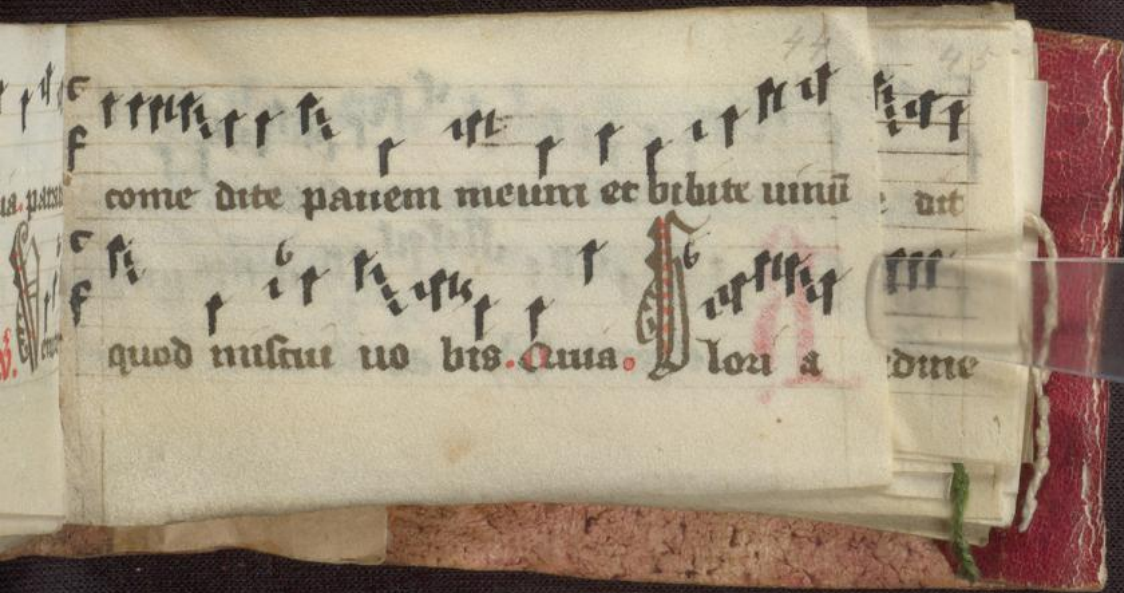 44 45
come dite panem meum et bibite uinū dit
quod miscui uo bis. Quia. Glori a edine